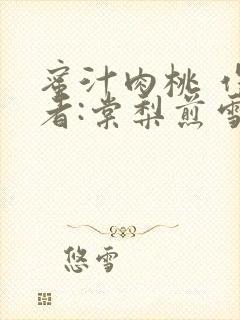 蜜汁肉桃 作
者:棠梨煎雪
悠雪